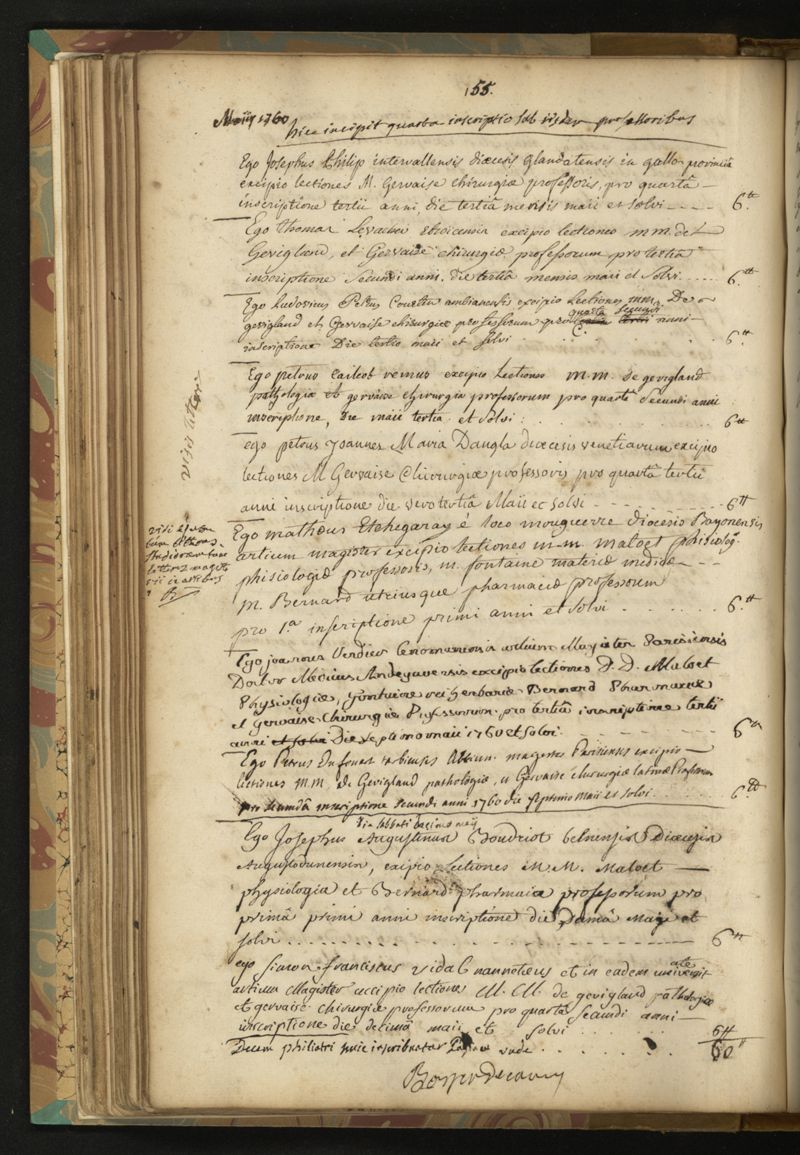 155.
Maii 1760
hice incipit quarta inscriptio sub iisdem professoribus
Ego Josephus Philip intervallensis diœcesis Glandatensis in gallo provincia
excipio lectiones M. Gervaise chirurgiæ professoris, pro quartâ
inscriptione tertii anni, die tertiâ mensis maii et solvi 6tt
Ego thomas Levacher excipio lectiones mm. de
Gevigland, et Gervaise chirurgiæ professorum pro tertiâ
inscriptione secundi anni. die tertiâ mensis maii et solvi 6tt
Ego Ludovicus Petrus Courtin ambianensis excipio Lectiones mm. De
gevigland et Gervaise chirurgiæ professorum pro quarta secundi anni
inscriptione Die tertio maii et solvi 6tt
Ego petrus remus excipio Lectiones m.m. de gevigland
pathologiæ et gervaise chirurgiæ professorum pro quartâ secundi anni
inscriptione, die maii tertia et solvi 6tt
visis litteris
ego petrus joannes Maria Dangla diœcesis venetiarum excipio
lectiones M Gervaise Chirurgiæ professoris pro quartâ tertii
anni inscriptione die vero tertiâ Maii et solvi 6tt
vidi
litteras
in artibus
Ego matheus Etchegaray è loco mouguerre diocesis Bayonensis
artium magister excipio lectiones m.m. maloet phisiolog.
phisiologiæ professoris, m. fontaine materiæ medicæ
m. Bernard utriusque pharmaciæ professorum
pro 1.a inscriptione primi anni et solvi 6tt
Ego joannes Verdier Cenomanensis artium Magister Parisiensis
Doctor Medicus Andegavensis excipio lectiones D.D. Maloet
Physiologiæ, fontaine rei herbariæ Bernard Pharmaciæ
et Gervaise Chirurgiæ Professorum pro tertiâ inscriptione tertii
anni et solvi Die septimo maii 1760 et solvi. 6tt
Ego Petrus artium magister Parisiensis excipio
lectiones m.m. de Gevigland pathologiæ, et Gervaise chirurgiæ latinæ Professorum
pro secundâ inscriptione secundi anni 1760 die septimo Maii et solvi 6tt
Die sabbati decimo maii
Ego Josephus Augustinus Boudriot belnensis Diœcesis
Augustodunensis, excipio Lectiones M.M. Maloet
physiologiæ et Bernard pharmaciæ professorum pro
primâ primi anni inscriptione die maii et
solvi 6tt
ego simon franciscus vidal nannetheus et in eadem universitate
artium Magister accipio lectiones M.M. de gevigland pathologiæ
et gervaise chirurgiæ professorum pro quartâ secundi anni
inscriptione die decimâ maii et solvi 6tt
Decem philiatri huic inscribuntur unde 60tt